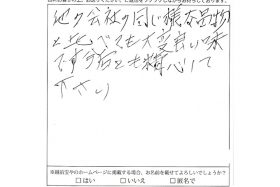 他の会社の同じ様な品物
と比べても大変良い味
です今后とも精心して
下さい
※越前宝やのホームページに掲載する場合、お名前を載せてよろしいでしょうか？
□はい □いいえ □匿名で